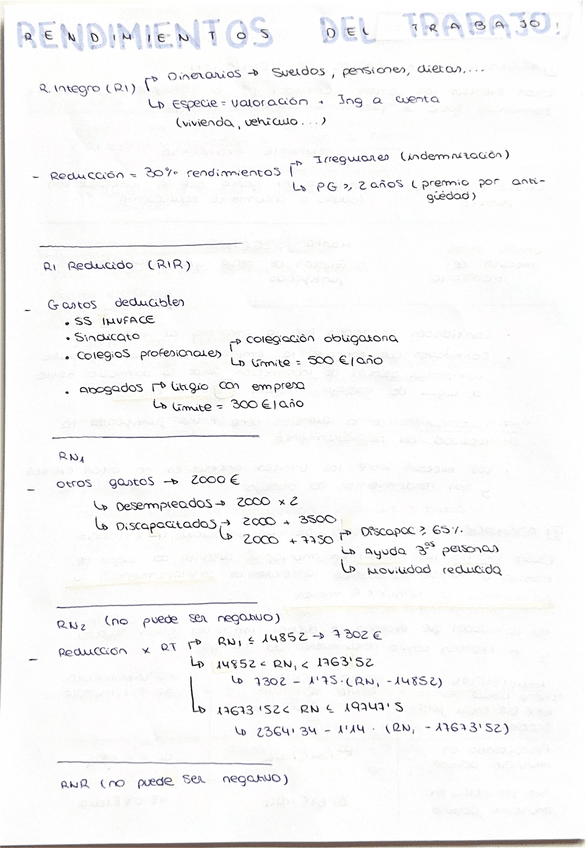 RENDIMIENTOS DEL TRABAJO:
R. Integro (RI) ↱ Dinerarios → Sueldos, pensiones, dietas,...
↳ Especie = valoración + Ing a cuenta
(vivienda, vehículo...)
- Reducción = 30% rendimientos ↱ Irregulares (indemnización)
↳ PG ≥ 2 años (premio por anti-
güedad)
RI Reducido (RIR)
- Gastos deducibles
• SS MUFACE
• Sindicato
• Colegios profesionales ↱ colegiación obligatoria
↳ Límite = 500 €/año
• Abogados ↱ litigio con empresa
↳ Límite = 300 €/año
RN1
- otros gastos → 2000 €
↳ Desempleados → 2000 x 2
↳ Discapacitados → 2000 + 3500
↳ 2000 + 7750 ↱ Discapac ≥ 65%
↳ Ayuda 3ºs personas
↳ Movilidad reducida
RN2 (no puede ser negativo)
- Reducción x RT ↱ RN1 ≤ 14852 → 7302 €
↳ 14852 < RN1 < 1763'52
↳ 7302 - 1'75 · (RN1 - 14852)
↳ 17673'52 < RN ≤ 19747'5
↳ 2364'34 - 1'14 · (RN1 - 17673'52)
RNR (no puede ser negativo)